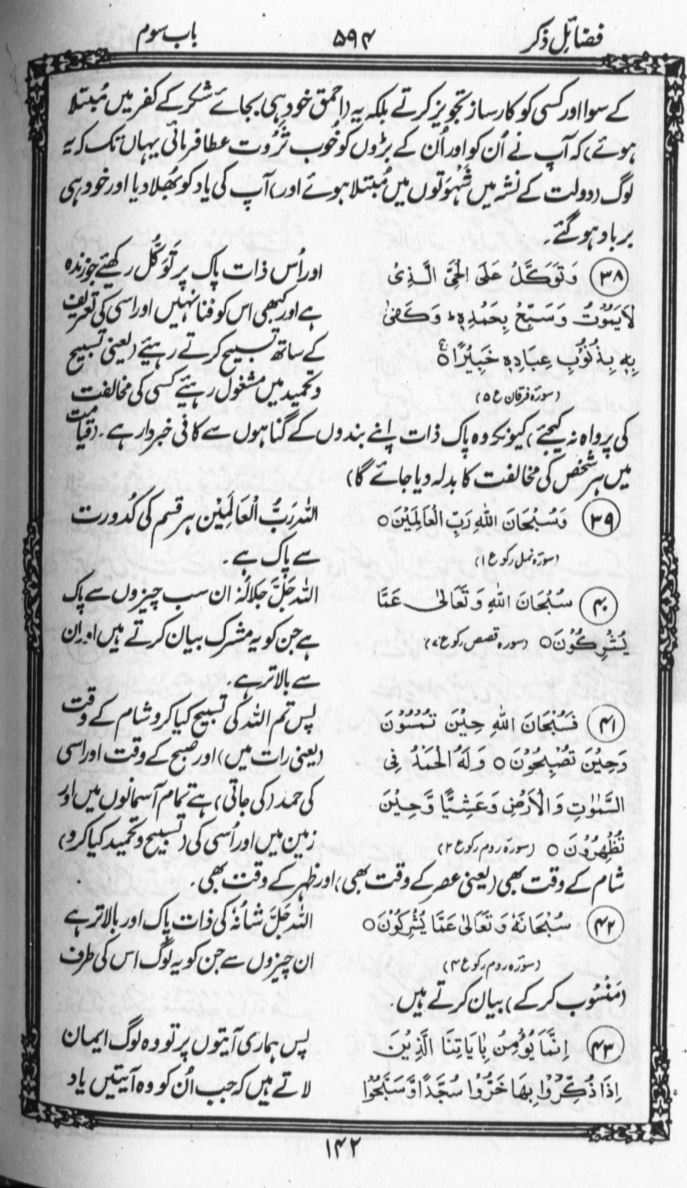 فضائل ذکر
۵۹۴
باب سوم
کے سوا اور کسی کو کارساز تجویز کرتے بلکہ یہ (احمق خود ہی بجائے شکر کے کفر میں مُبتلا
ہوئے) کہ آپ نے اُن کو اور اُن کے بڑوں کو خُوب ثَروت عطا فرمائی یہاں تک کہ یہ
لوگ (دولت کے نشہ میں شَہْوَتوں میں مُبتلا ہوئے اور) آپ کی یاد کو بُھلا دیا اور خود ہی
برباد ہو گئے
(۳۸) وَتَوَكَّلْ عَلَى الْحَيِّ الَّذِىْ
لَايَمُوْتُ وَسَبِّحْ بِحَمْدِهٖ ؕ وَكَفٰى
بِهٖ بِذُنُوْبِ عِبَادِهٖ خَبِيْرًا ۵
(سورۃ فرقان ع ۵)
اور اُس ذات پاک پر تَوَکُّل رکھئے جو زندہ
ہے اور کبھی اس کو فنا نہیں اور اسی کی تعریف
کے ساتھ تسبیح کرتے رہیئے (یعنی تسبیح
و تحمید میں مشغول رہیئے کسی کی مخالفت
کی پرواہ نہ کیجئے) کیونکہ وہ پاک ذات اپنے بندوں کے گناہوں سے کافی خبردار ہے۔ (قیامت
میں ہر شخص کی مخالفت کا بدلہ دیا جائے گا)
(۳۹) وَسُبْحَانَ اللهِ رَبِّ الْعَالَمِيْنَ ۵
(سورۃ نمل رکوع ۱)
اللہ رَبُّ الْعَالَمِیْن ہر قسم کی کُدورت
سے پاک ہے۔
(۴۰) سُبْحَانَ اللهِ وَتَعَالٰى عَمَّا
يُشْرِكُوْنَ ۵ (سورہ قصص رکوع ۷)
اللہ جَلَّ جَلَالُہٗ ان سب چیزوں سے پاک
ہے جن کو یہ مشرک بیان کرتے ہیں اور ان
سے بالاتر ہے۔
(۴۱) فَسُبْحَانَ اللهِ حِيْنَ تُمْسُوْنَ
وَحِيْنَ تُصْبِحُوْنَ ۵ وَلَهُ الْحَمْدُ فِى
السَّمٰوٰتِ وَالْاَرْضِ وَعَشِيًّا وَّحِيْنَ
تُظْهِرُوْنَ ۵ (سورہ روم رکوع ۲)
پس تم اللہ کی تسبیح کیا کرو شام کے وقت
(یعنی رات میں) اور صبح کے وقت اور اسی
کی حمد (کی جاتی) ہے تمام آسمانوں میں اور
زمین میں اور اُسی کی (تسبیح و تحمید کیا کرو)
شام کے وقت بھی (یعنی عصر کے وقت بھی) اور ظہر کے وقت بھی۔
(۴۲) سُبْحَانَهٗ وَتَعَالٰى عَمَّا يُشْرِكُوْنَ ۵
(سورہ روم رکوع ۴)
اللہ جَلَّ شَانُہٗ کی ذات پاک اور بالاتر ہے
ان چیزوں سے جن کو یہ لوگ اس کی طرف
(مَنْسُوب کر کے) بیان کرتے ہیں۔
(۴۳) اِنَّمَا يُؤْمِنُ بِاٰيَاتِنَا الَّذِيْنَ
اِذَا ذُكِّرُوْا بِهَا خَرُّوْا سُجَّدًا وَّسَبَّحُوْا
پس ہماری آیتوں پر تو وہ لوگ ایمان
لاتے ہیں کہ جب اُن کو وہ آیتیں یاد
۱۴۲